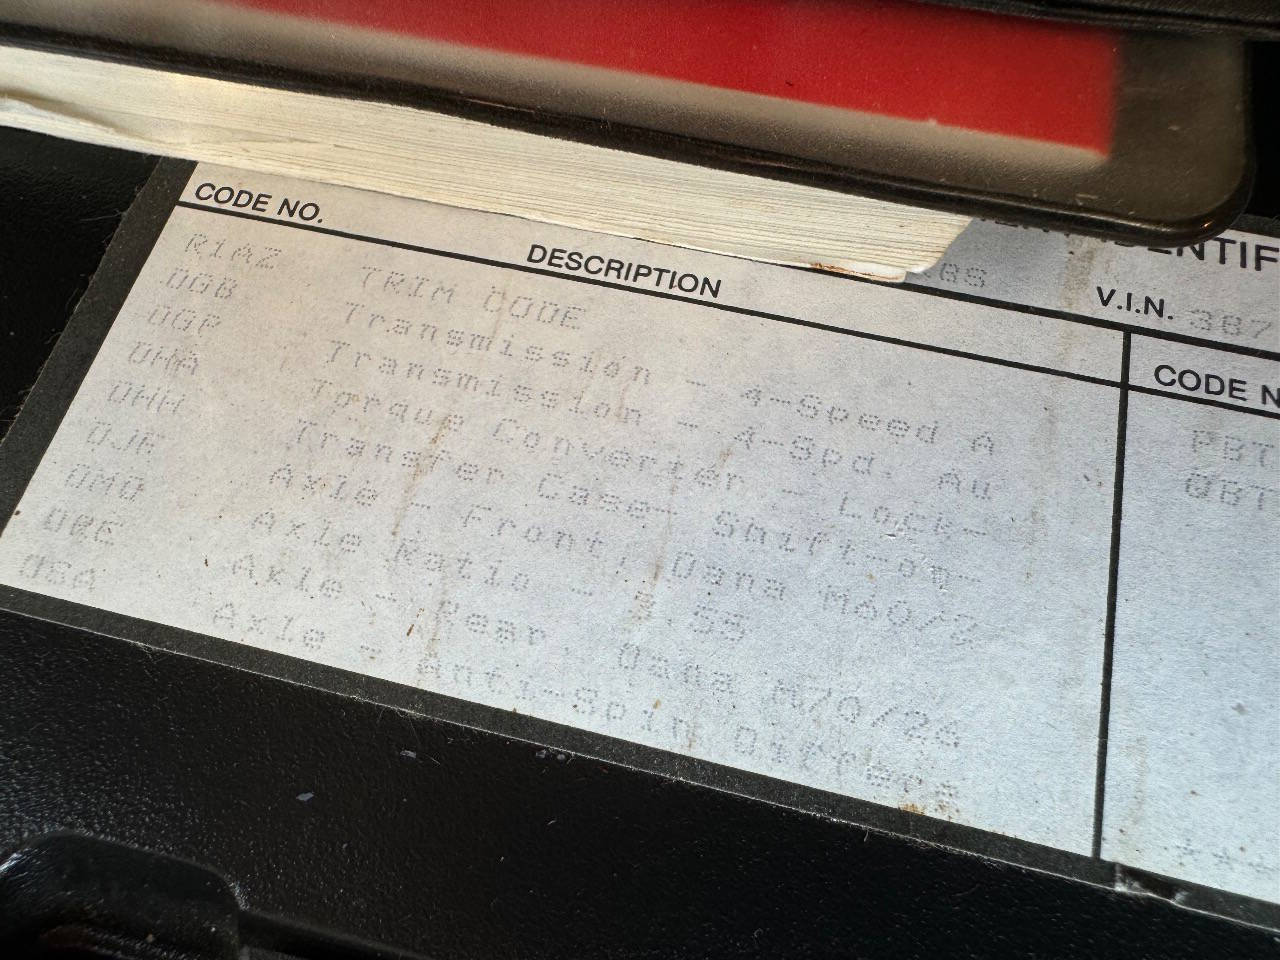 CODE NO. DESCRIPTION
V.I.N. 387
CODE N
R1AZ TRIM CODE
DGB Transmission - 4-Speed A
DGP Transmission - 4-Spd. Au
DHA Torque Converter - Lock-
DHH Transfer Case- Shift-on-
DJK Axle - Front, Dana M60/2
DMD Axle Ratio - 3.55
DRE Axle - Rear, Dana M70/26
DSA Axle - Anti-Spin Differe